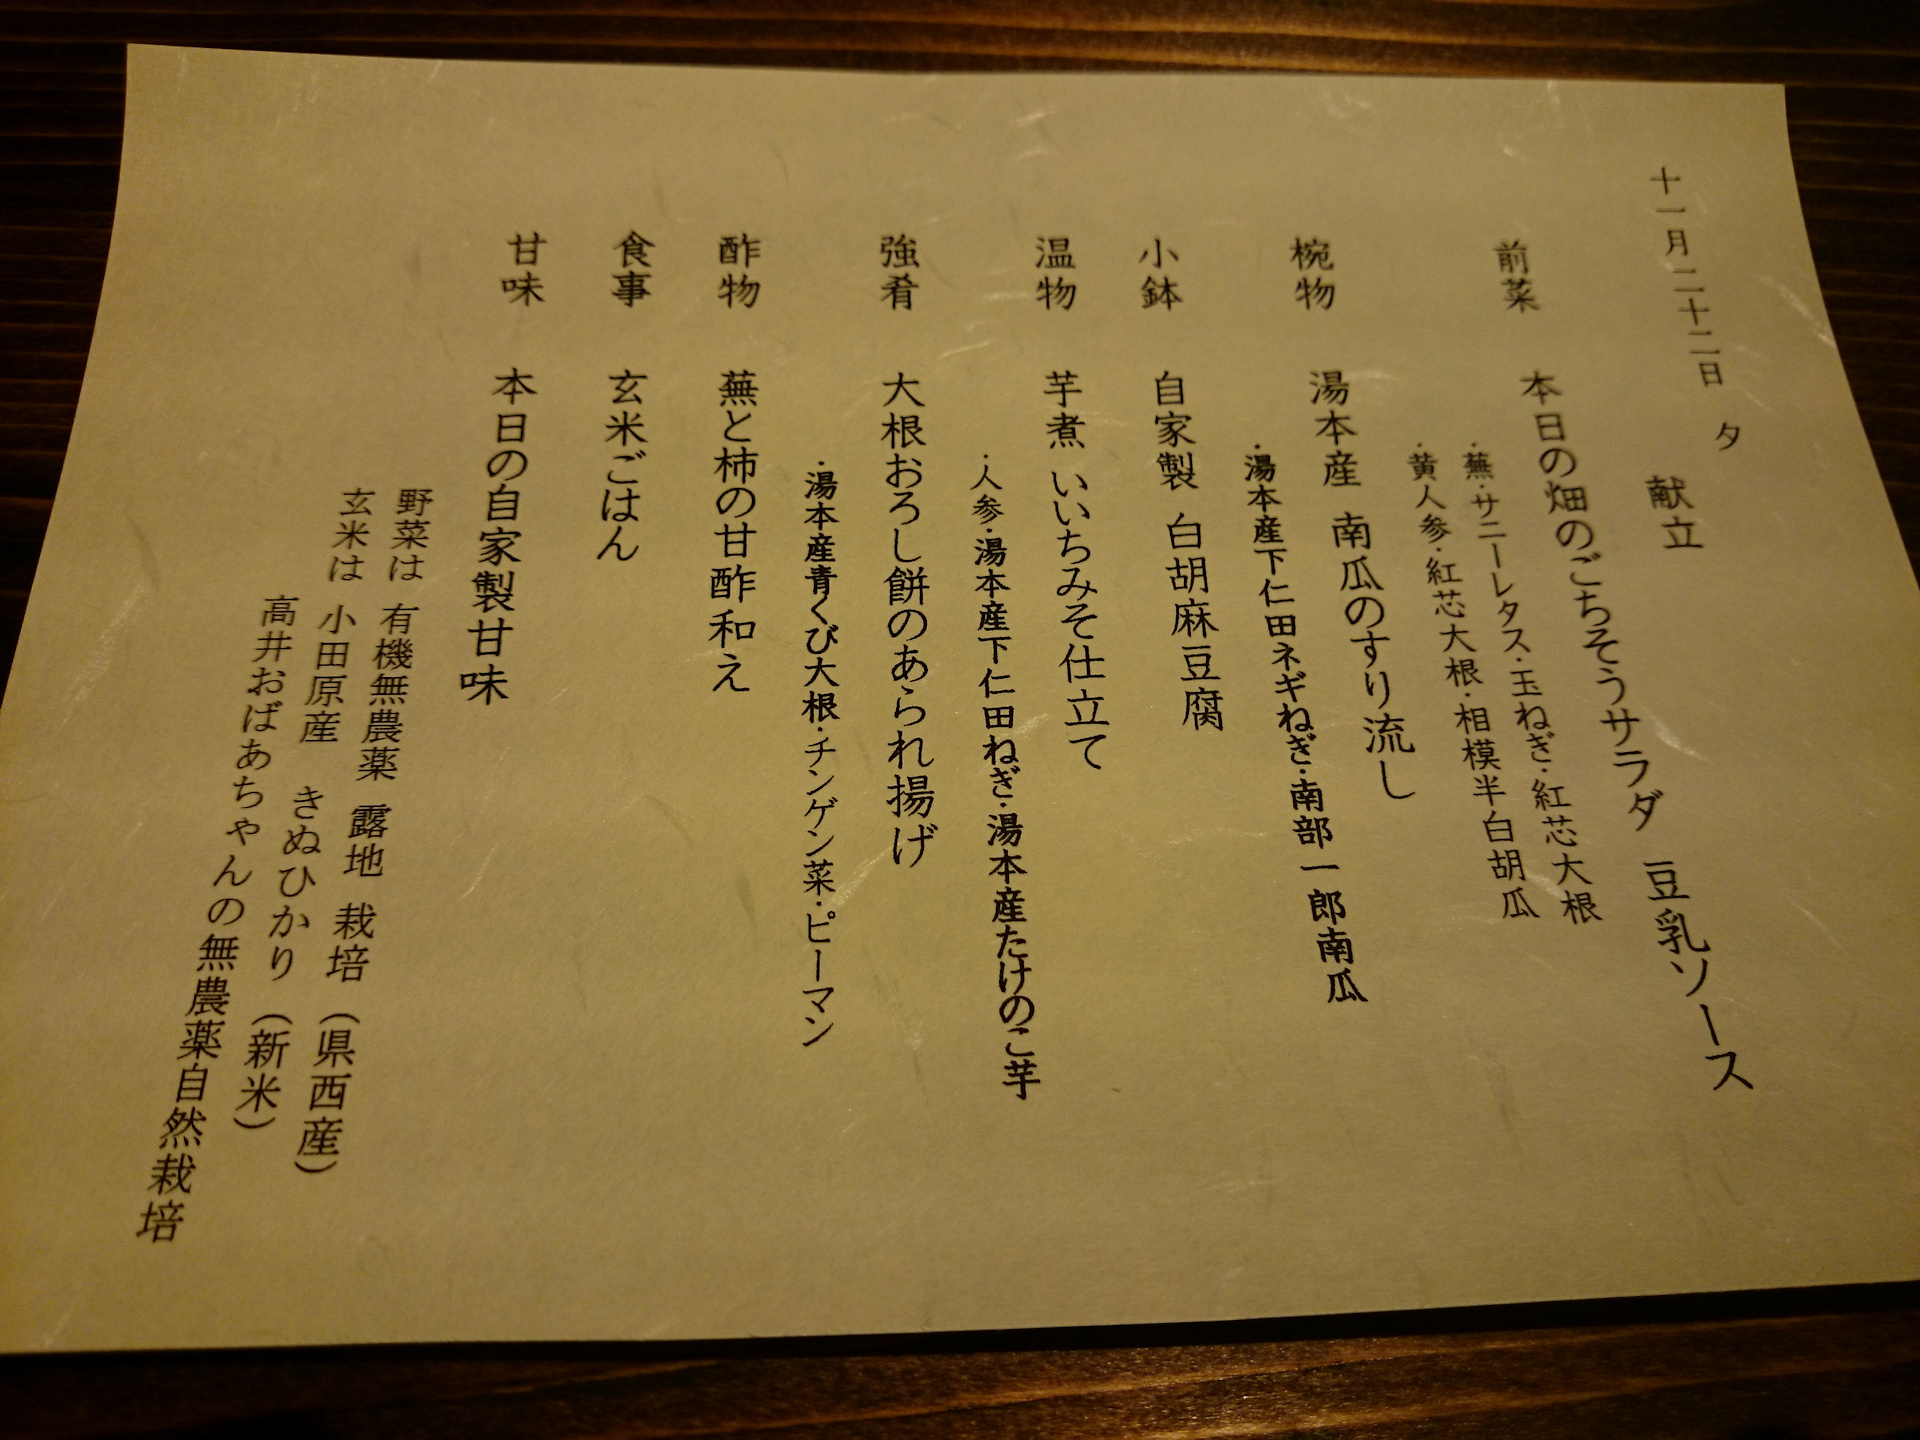 十一月二十二日 夕
献立
前菜 本日の畑のごちそうサラダ 豆乳ソース
・蕪・サニーレタス・玉ねぎ・紅芯大根
・黄人参・紅芯大根・相模半白胡瓜
椀物 湯本産 南瓜のすり流し
・湯本産下仁田ネギねぎ・南部一郎南瓜
小鉢 自家製 白胡麻豆腐
温物 芋煮 いいちみそ仕立て
・人参・湯本産下仁田ねぎ・湯本産たけのこ芋
強肴 大根おろし餅のあられ揚げ
・湯本産青くび大根・チンゲン菜・ピーマン
酢物 蕪と柿の甘酢和え
食事 玄米ごはん
甘味 本日の自家製甘味
野菜は 有機無農薬 露地 栽培 (県西産)
玄米は 小田原産 きぬひかり (新米)
高井おばあちゃんの無農薬自然栽培